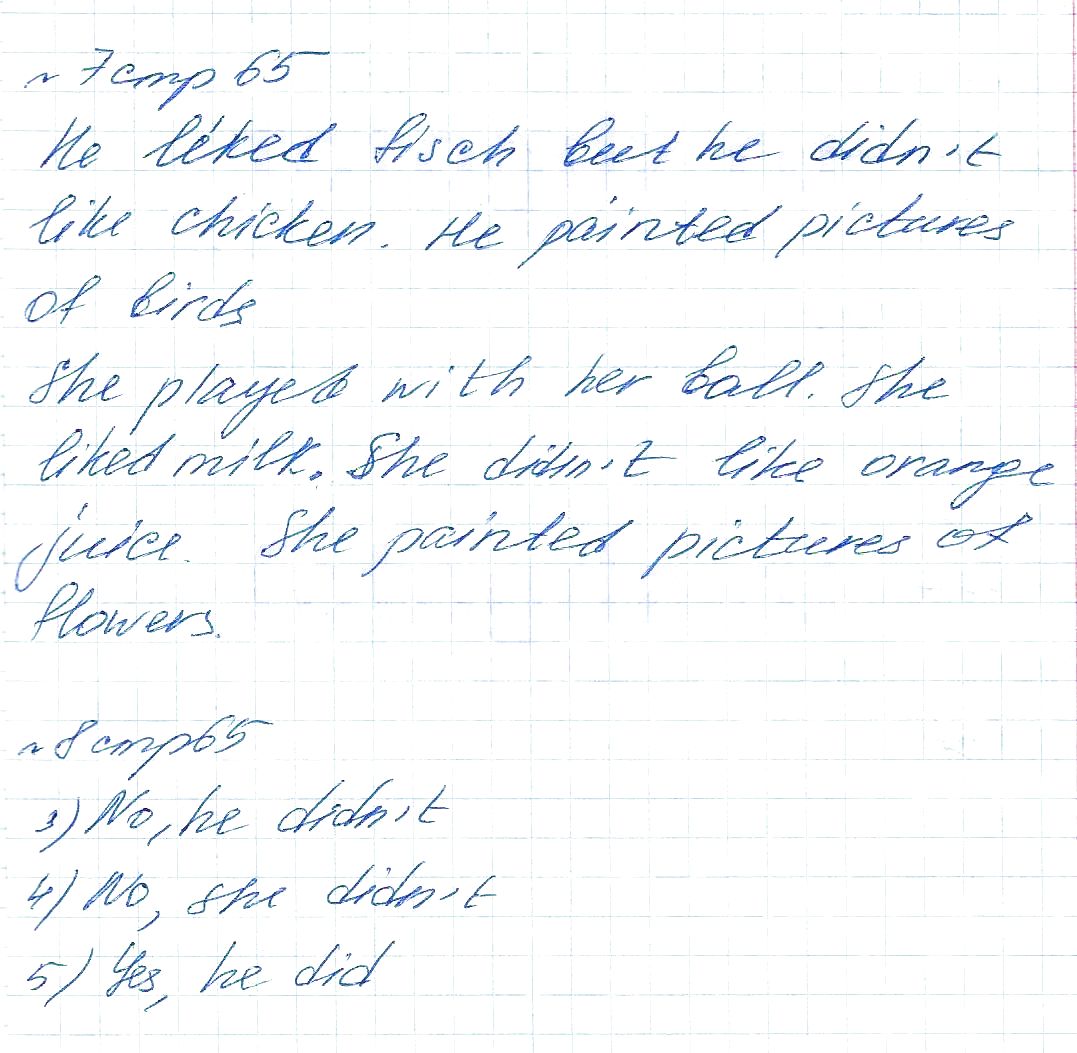 ~ 7 стр 65
He liked fisch but he didn't
like chicken. He painted pictures
of birds
She played with her ball. She
liked milk. She didn't like orange
juice. She painted pictures of
flowers.
~ 8 стр 65
3) No, he didn't
4) No, she didn't
5) Yes, he did